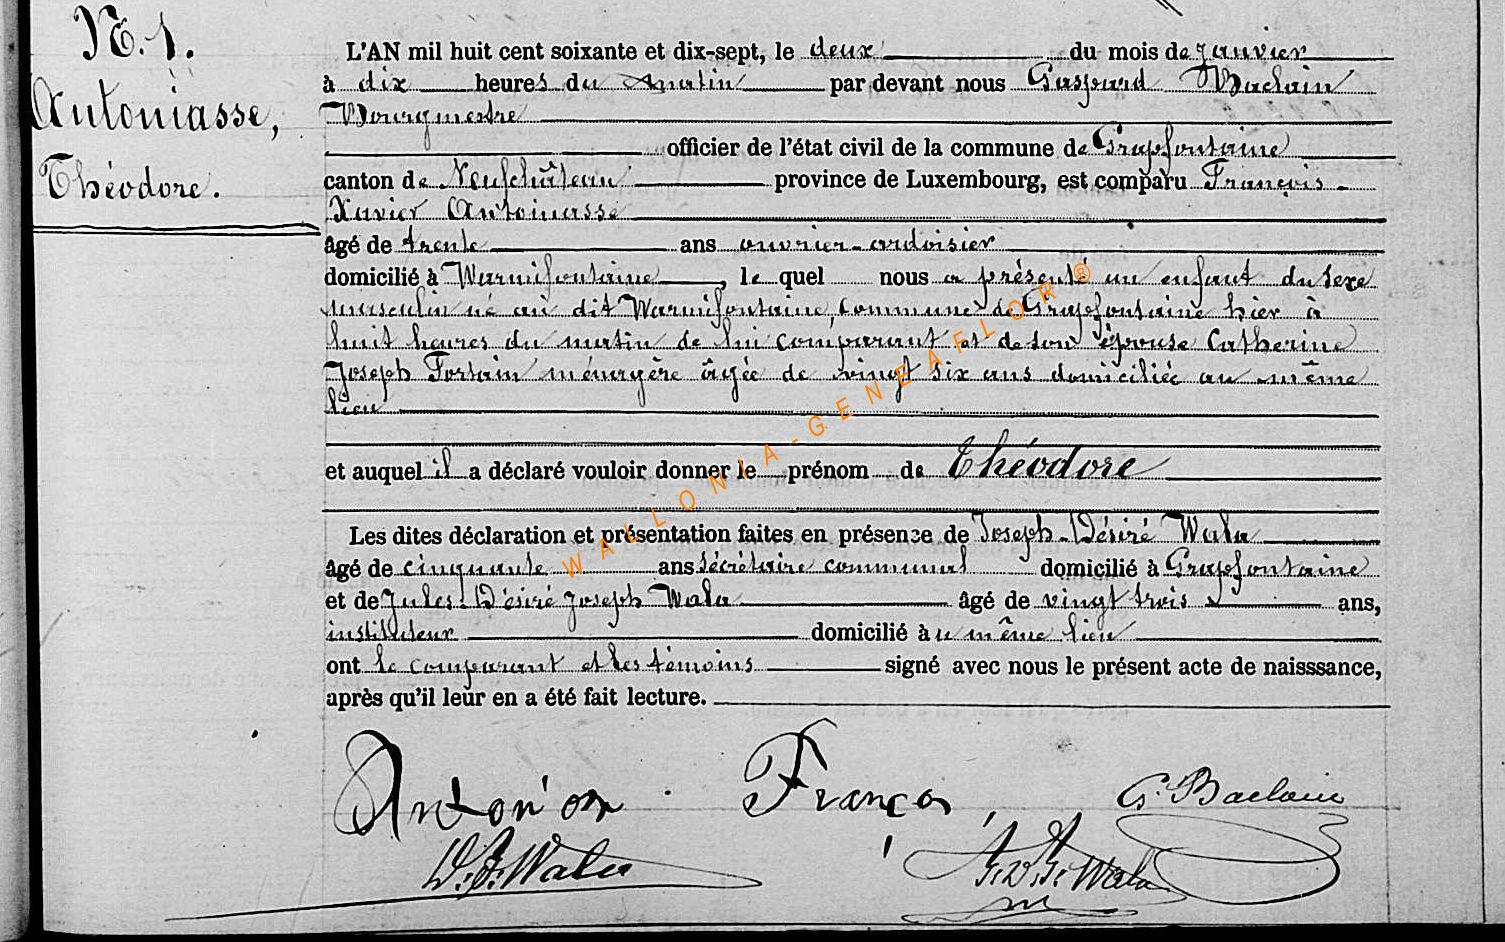 N. 1.
Antoniasse,
Théodore.
L'AN mil huit cent soixante et dix-sept, le deux du mois de janvier
à dix heures du matin par devant nous Gaspard Baclain
Bourgmestre
officier de l'état civil de la commune de Grapfontaine
canton de Neufchâteau province de Luxembourg, est comparu François-
Xavier Antoinasse
âgé de trente ans ouvrier-ardoisier
domicilié à Warmifontaine, le quel nous a présenté un enfant du sexe
masculin né au dit Warmifontaine, commune de Grapfontaine hier à
huit heures du matin de lui comparant et de son épouse Catherine
Joseph Fortain ménagère âgée de vingt six ans domiciliée au même
lieu
et auquel il a déclaré vouloir donner le prénom de Théodore
Les dites déclaration et présentation faites en présence de Joseph-Désiré Wala
âgé de cinquante ans secrétaire communal domicilié à Grapfontaine
et de Jules-Désiré Joseph Wala âgé de vingt trois ans,
instituteur domicilié au même lieu
ont le comparant et les témoins signé avec nous le présent acte de naisssance,
après qu'il leur en a été fait lecture.
WALLONIA-GENEAFLOR®
G. Baclain
D. J. Wala
J. D. J. Wala